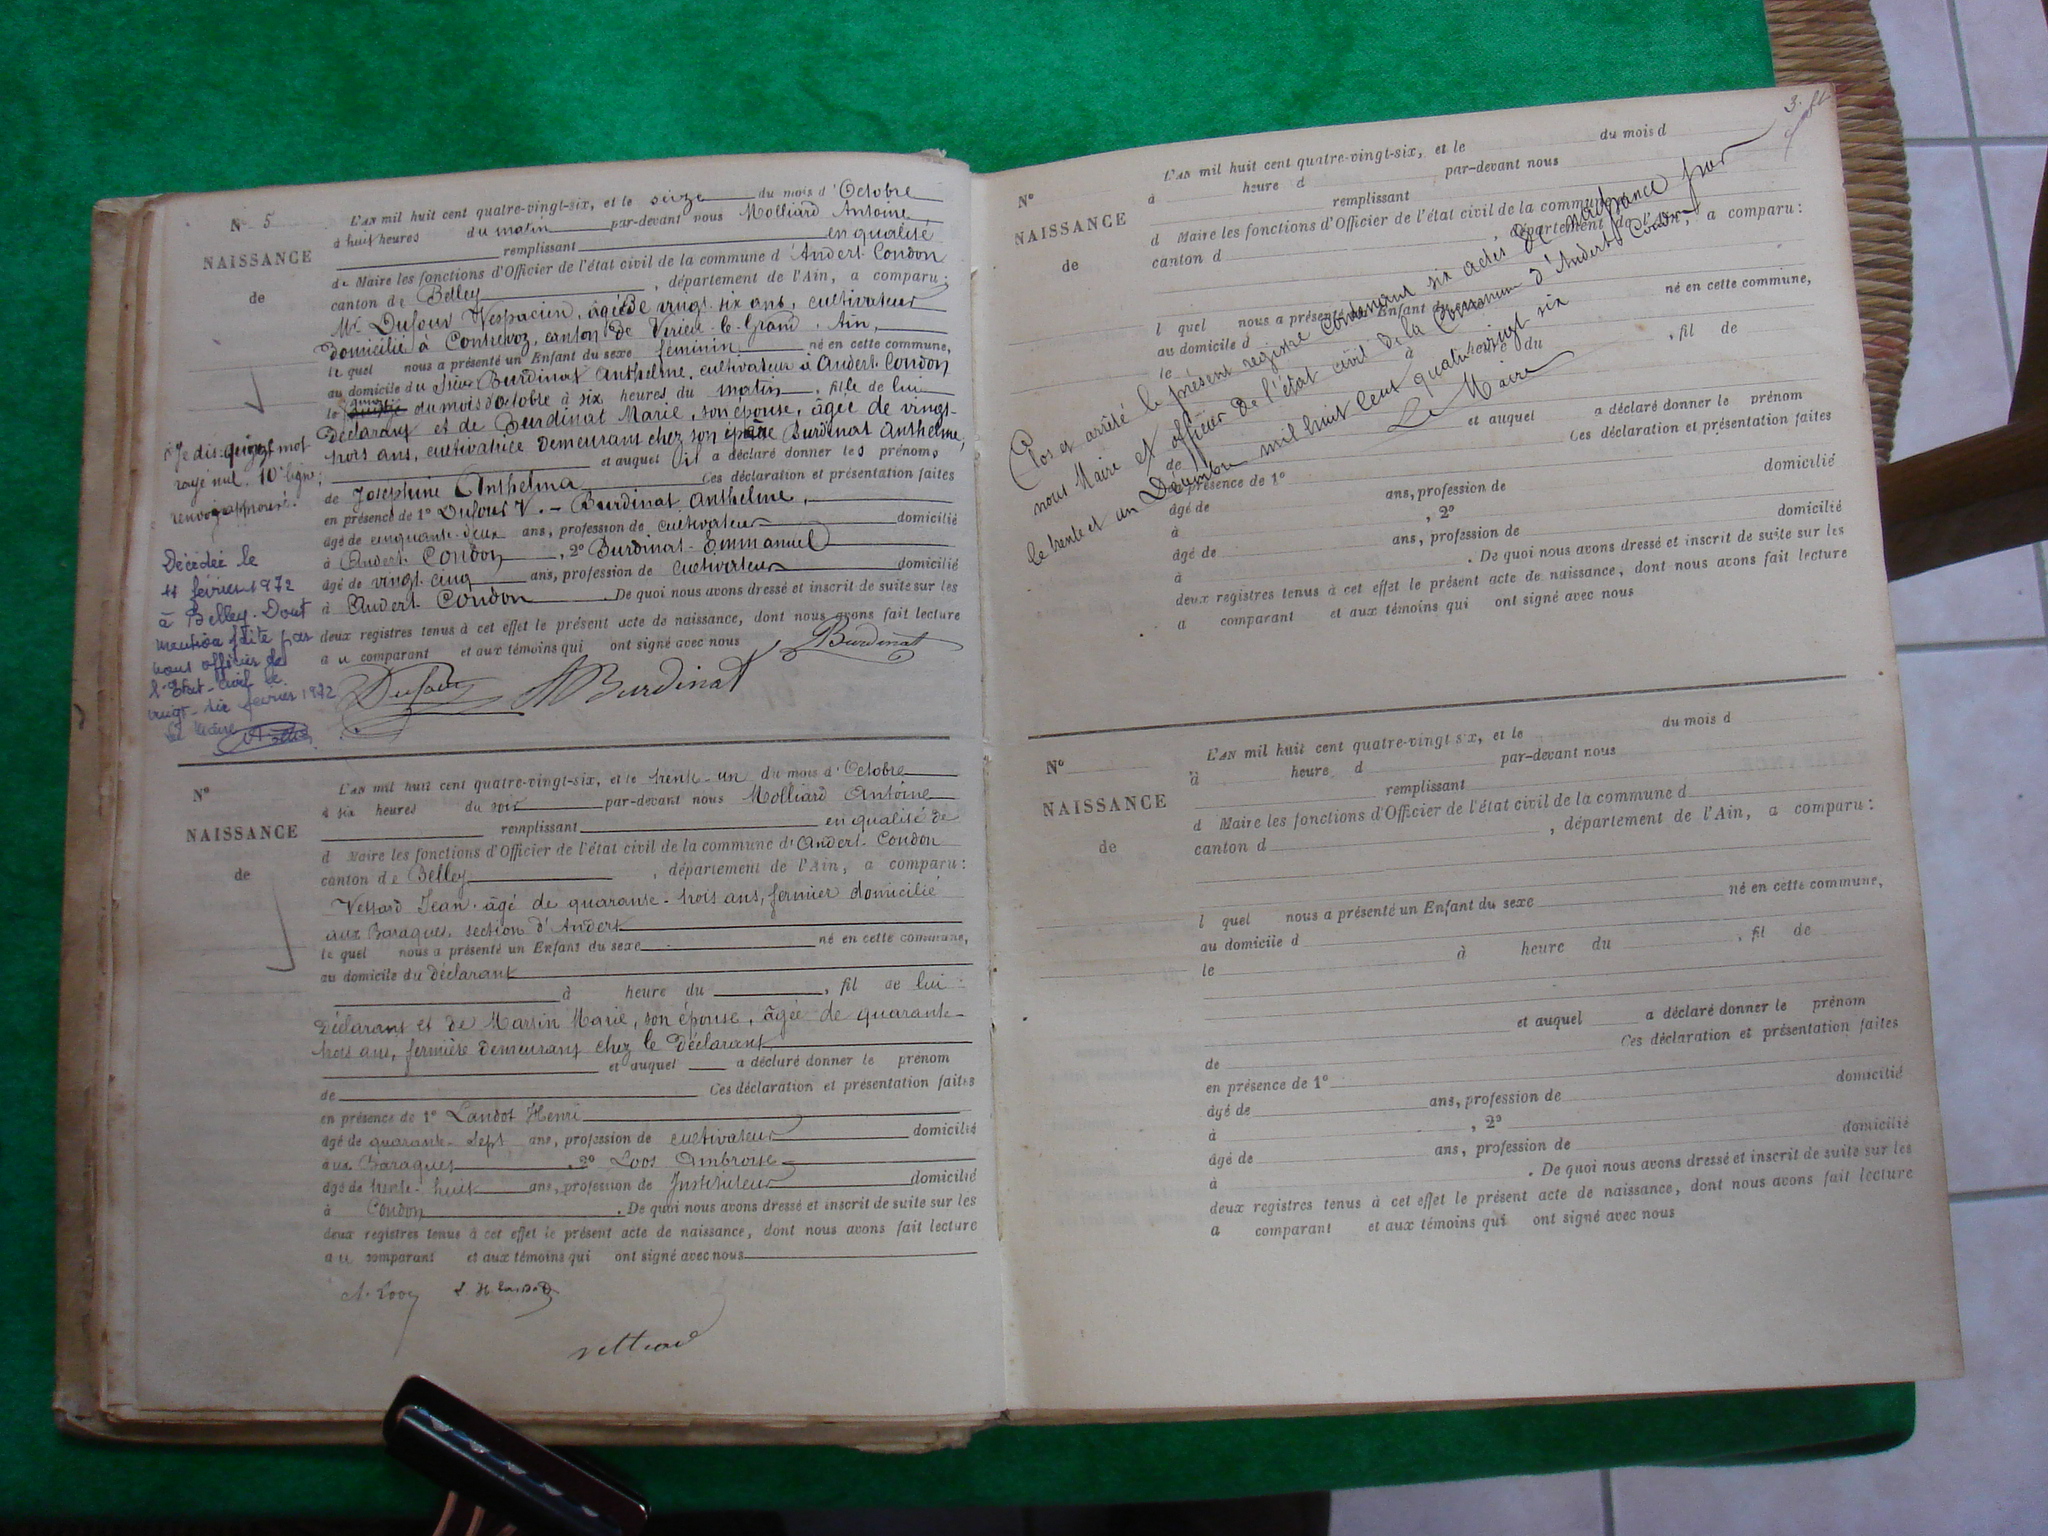 N° 5
NAISSANCE
de
L'AN mil huit cent quatre-vingt-six, et le seize du mois d'Octobre
à huit heures du matin par-devant nous Molliard Antoine
remplissant en qualité
de Maire les fonctions d'Officier de l'état civil de la commune d'Andert-Condon
canton de Belley, département de l'Ain, a comparu:
Mr Dufour Vespacien, âgé de vingt-six ans, cultivateur
domicilié à Contrevoz, canton de Virieu-le-Grand, Ain,
le quel nous a présenté un Enfant du sexe féminin né en cette commune,
au domicile du sieur Burdinat Anthelme, cultivateur à Andert-Condon
le quinze du mois d'octobre à six heures du matin, fille de lui
déclarant et de Burdinat Marie, son épouse, âgée de vingt-
trois ans, cultivatrice demeurant chez son père Burdinat Anthelme,
et auquel il a déclaré donner les prénoms
de Joséphine Anthelma Ces déclaration et présentation faites
en présence de 1° Dufour V. - Burdinat Anthelme,
âgé de cinquante-deux ans, profession de cultivateur domicilié
à Andert-Condon, 2° Burdinat Emmanuel
âgé de vingt-cinq ans, profession de cultivateur domicilié
à Andert-Condon. De quoi nous avons dressé et inscrit de suite sur les
deux registres tenus à cet effet le présent acte de naissance, dont nous avons fait lecture
au comparant et aux témoins qui ont signé avec nous
Burdinat
Dufour ABurdinat
Je dis: quinze mot
rayé nul. 10e ligne;
renvoi approuvé.
Décédée le
11 février 1972
à Belley. Dont
mention faite par
nous officier de
l'Etat-Civil le
vingt-six février 1972
Le Maire
N°
NAISSANCE
de
L'AN mil huit cent quatre-vingt-six, et le trente-un du mois d'Octobre
à six heures du soir par-devant nous Molliard Antoine
remplissant en qualité de
d Maire les fonctions d'Officier de l'état civil de la commune d'Andert-Condon
canton de Belley, département de l'Ain, a comparu:
Vettard Jean, âgé de quarante-trois ans, fermier domicilié
aux Baraques, section d'Andert
le quel nous a présenté un Enfant du sexe né en cette commune,
au domicile du déclarant
à heure du, fil de lui
déclarant et de Martin Marie, son épouse, âgée de quarante-
trois ans, fermière demeurant chez le déclarant
et auquel a déclaré donner le prénom
de Ces déclaration et présentation faites
en présence de 1° Landot Henri
âgé de quarante-sept ans, profession de cultivateur domicilié
aux Baraques, 2° Loos Ambroise
âgé de trente-huit ans, profession de Instituteur domicilié
à Condon. De quoi nous avons dressé et inscrit de suite sur les
deux registres tenus à cet effet le présent acte de naissance, dont nous avons fait lecture
au comparant et aux témoins qui ont signé avec nous
A. Loos
Vettard
3.
N°
NAISSANCE
de
L'AN mil huit cent quatre-vingt-six, et le du mois d
à heure d par-devant nous
remplissant
d Maire les fonctions d'Officier de l'état civil de la commune d
canton d, département de l'Ain, a comparu:
l quel nous a présenté un Enfant du sexe né en cette commune,
au domicile d
le à heure du, fil de
et auquel a déclaré donner le prénom
de Ces déclaration et présentation faites
en présence de 1°
âgé de ans, profession de domicilié
à, 2°
âgé de ans, profession de domicilié
à. De quoi nous avons dressé et inscrit de suite sur les
deux registres tenus à cet effet le présent acte de naissance, dont nous avons fait lecture
a comparant et aux témoins qui ont signé avec nous
Clos et arrêté le présent registre contenant six actes de naissance par
nous Maire et officier de l'état civil de la Commune d'Andert-Condon,
le trente et un Décembre mil huit cent quatre vingt six
Le Maire
N°
NAISSANCE
de
L'AN mil huit cent quatre-vingt six, et le du mois d
à heure d par-devant nous
remplissant
d Maire les fonctions d'Officier de l'état civil de la commune d
canton d, département de l'Ain, a comparu:
l quel nous a présenté un Enfant du sexe né en cette commune,
au domicile d
le à heure du, fil de
et auquel a déclaré donner le prénom
de Ces déclaration et présentation faites
en présence de 1°
âgé de ans, profession de domicilié
à, 2°
âgé de ans, profession de domicilié
à. De quoi nous avons dressé et inscrit de suite sur les
deux registres tenus à cet effet le présent acte de naissance, dont nous avons fait lecture
a comparant et aux témoins qui ont signé avec nous